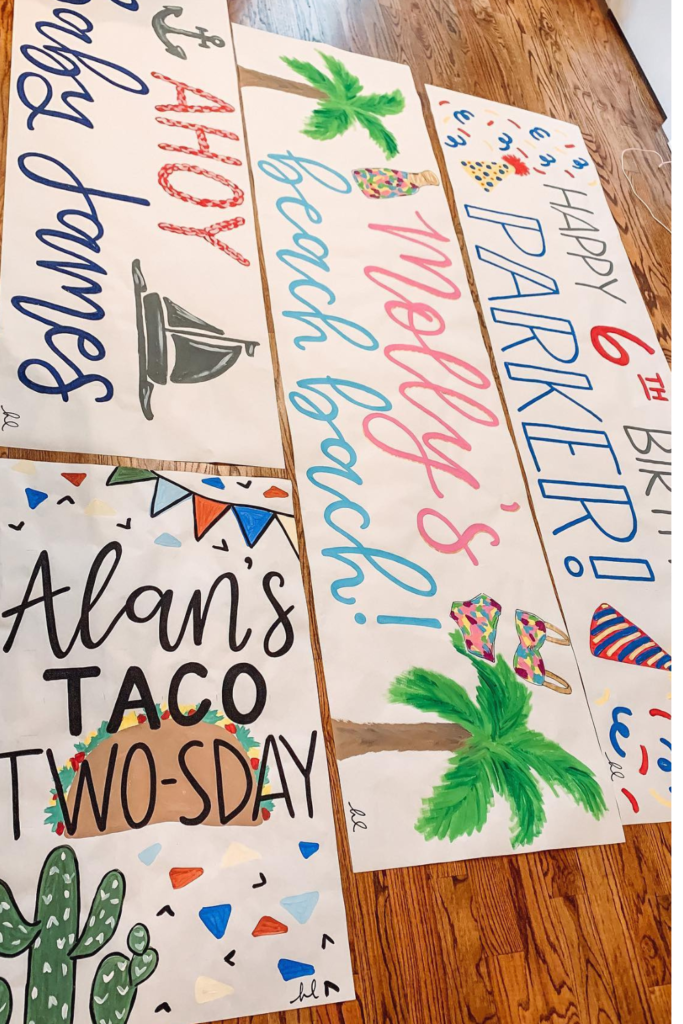 AHOY
Baby James
hl
Molly's
beach bach!
hl
HAPPY 6TH BIRT
PARKER!
hl
Alan's
TACO
TWO-SDAY
hl